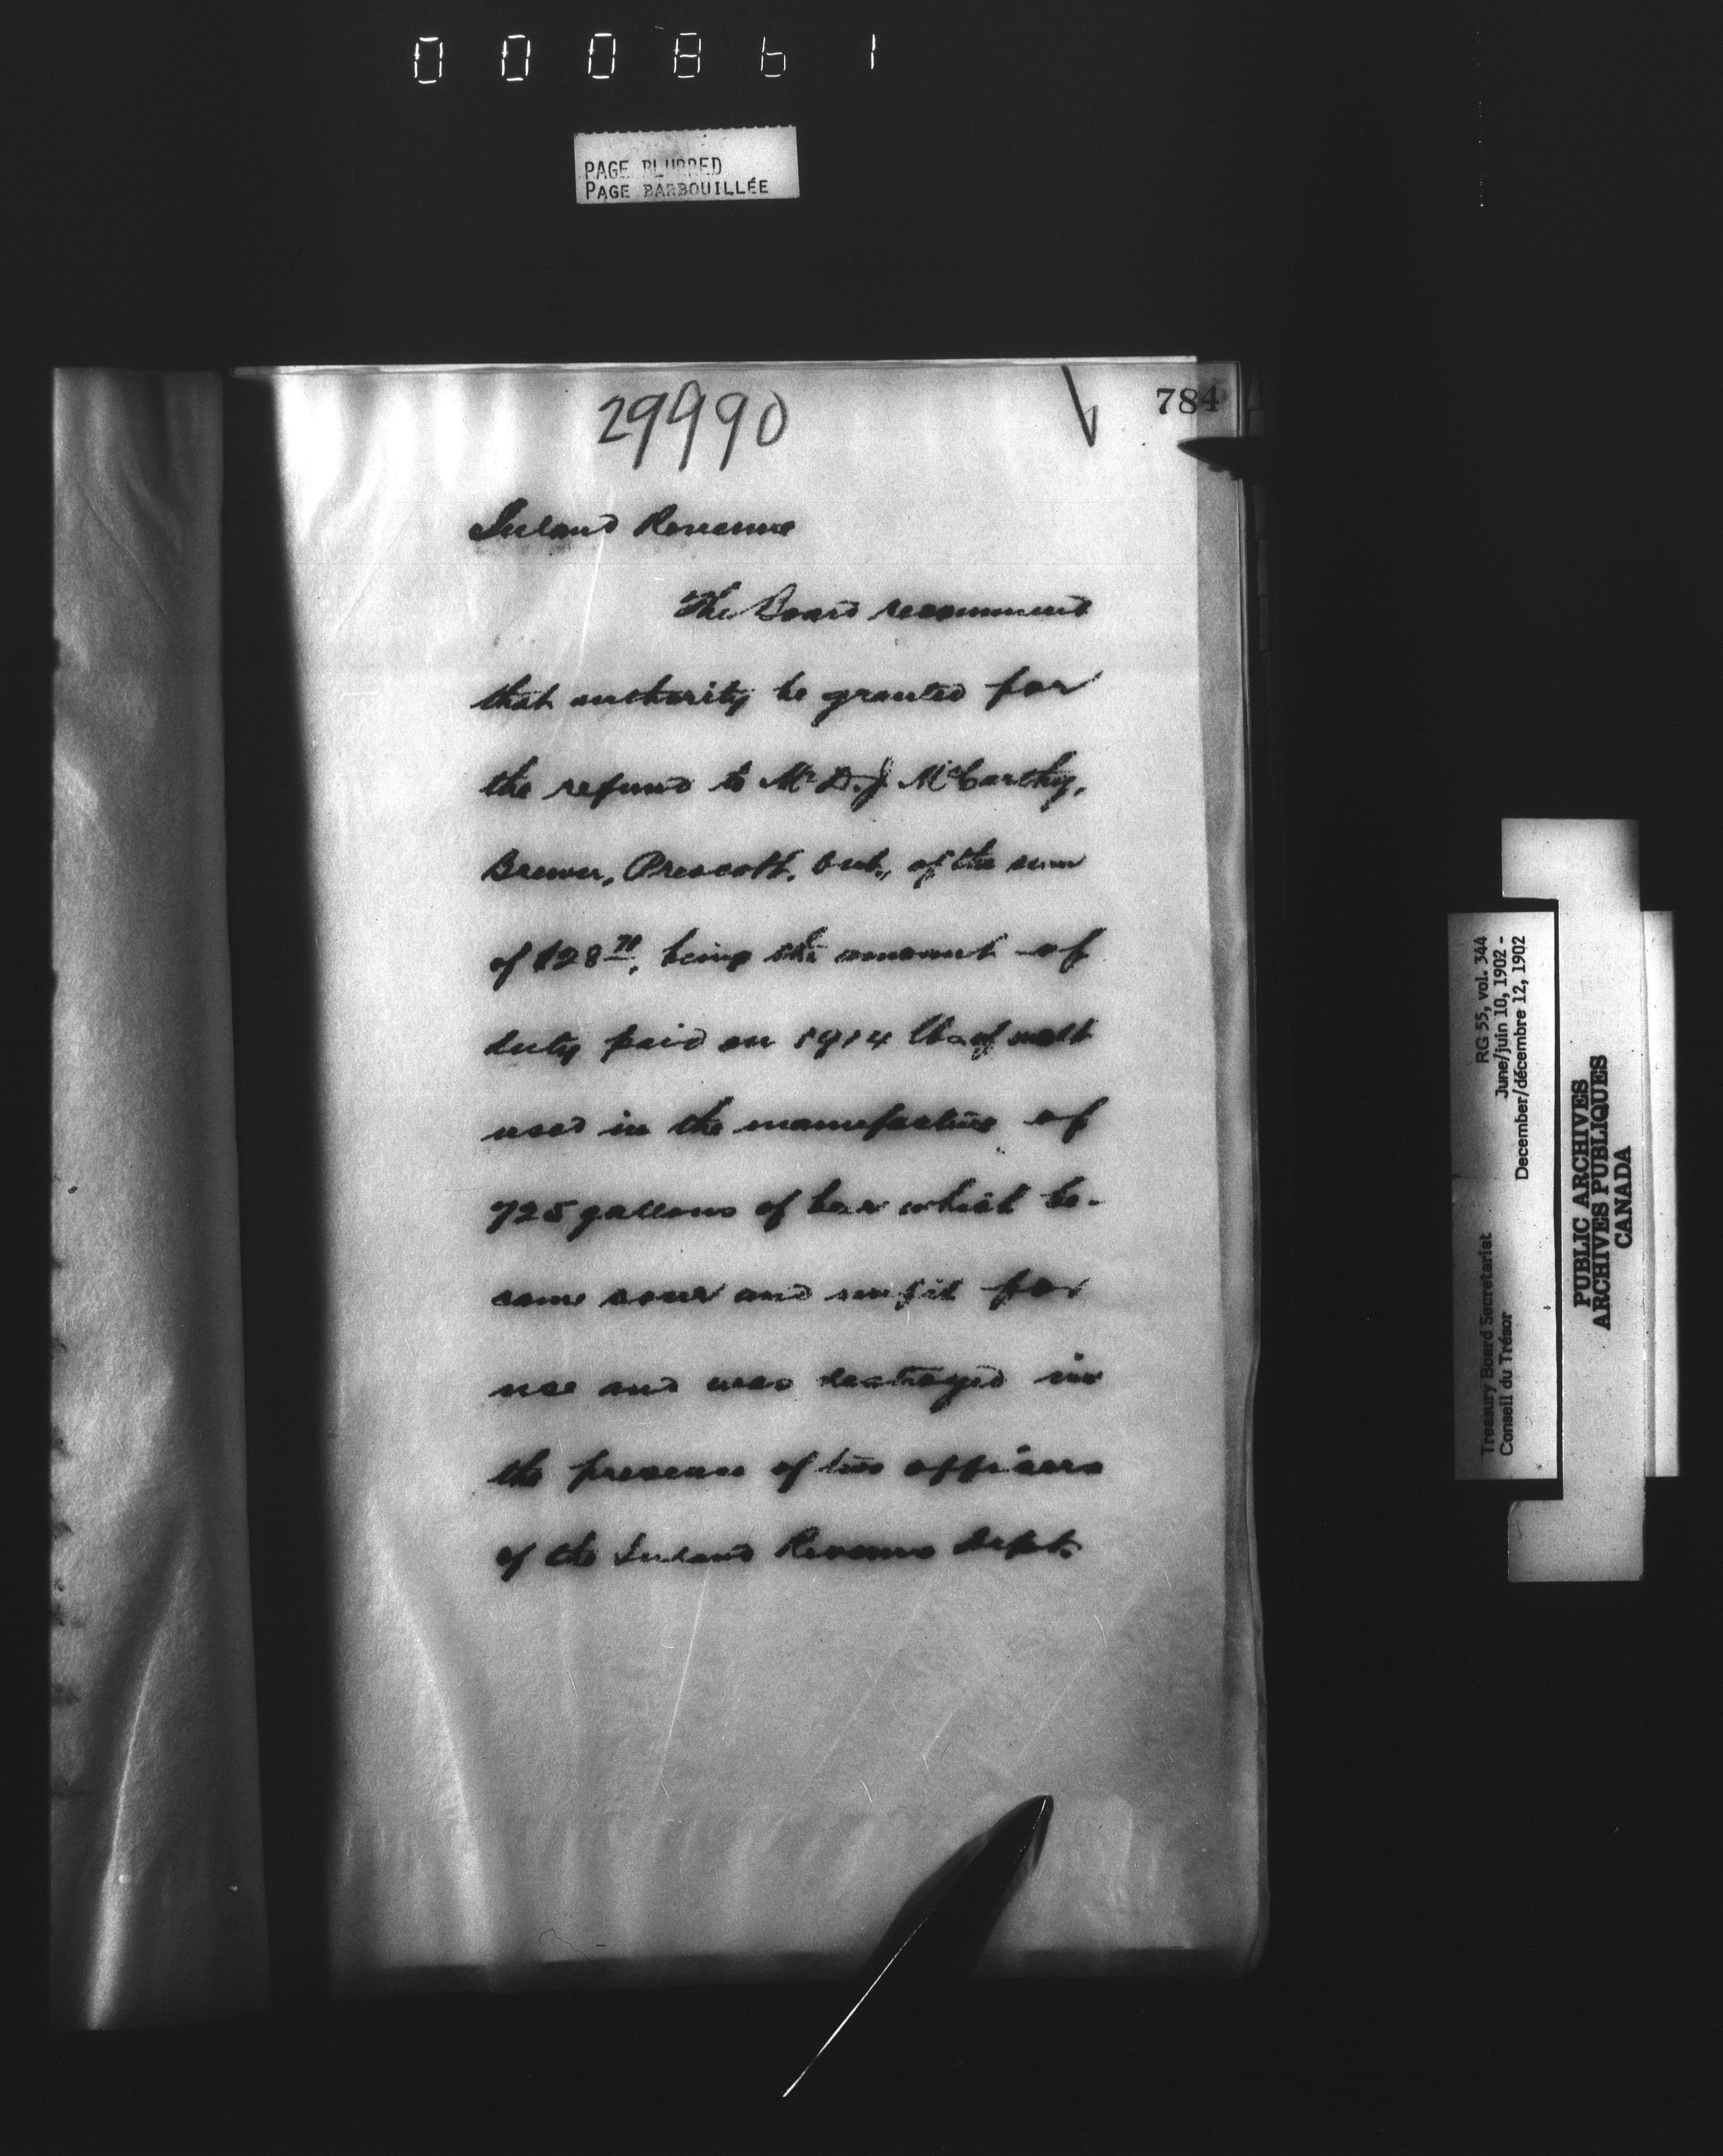 000861
PAGE BLURRED
PAGE BARBOUILLÉE
784
29990
Inland Revenue
The Board recommend
that authority be granted for
the refund to Mr D. J. McCarthy,
Brewer, Prescott, Ont., of the sum
of $28 71, being the amount of
duty paid on 1914 lbs of malt
used in the manufacture of
725 gallons of beer which be-
came sour and unfit for
use and was destroyed in
the presence of two officers
of the Inland Revenue Dept.
Treasury Board Secretariat RG 55, vol. 344
Conseil du Trésor June/juin 10, 1902 -
December/décembre 12, 1902
PUBLIC ARCHIVES
ARCHIVES PUBLIQUES
CANADA